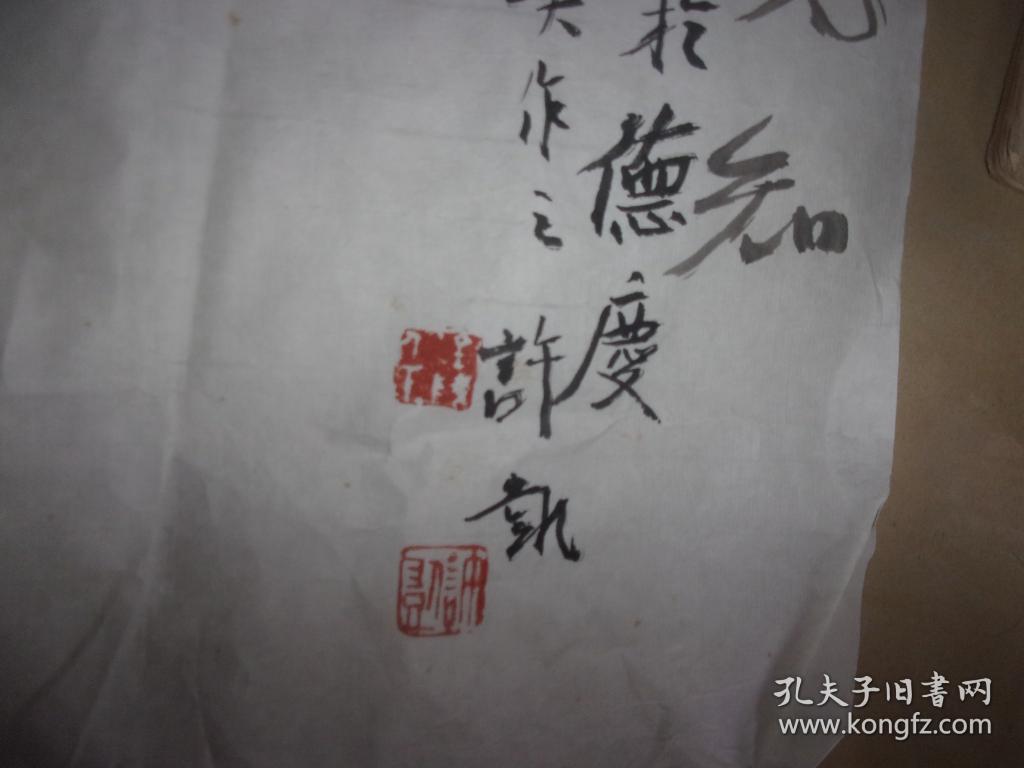 知
於德慶
作之
許凱
孔夫子旧書网
www.kongfz.com